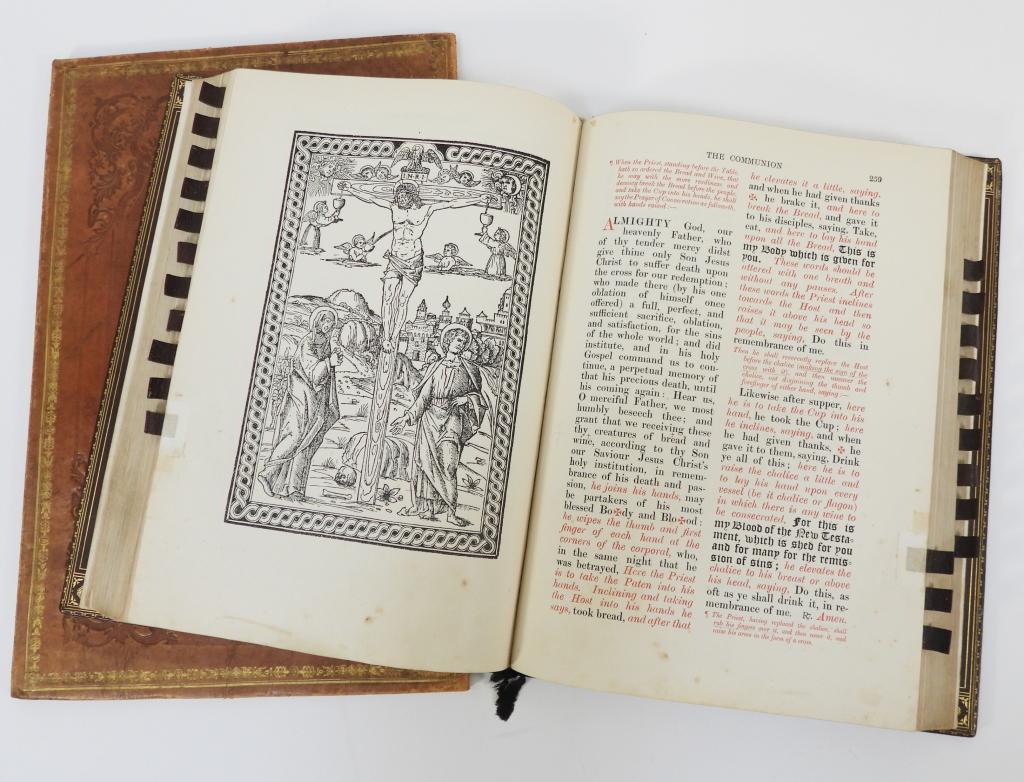 I.N.R.I
THE COMMUNION
259
¶ When the Priest, standing before the Table,
hath so ordered the Bread and Wine, that
he may with the more readiness and
decency break the Bread before the people,
and take the Cup into his hands, he shall
say the Prayer of Consecration as followeth,
with hands raised :—
ALMIGHTY God, our
heavenly Father, who
of thy tender mercy didst
give thine only Son Jesus
Christ to suffer death upon
the cross for our redemption ;
who made there (by his one
oblation of himself once
offered) a full, perfect, and
sufficient sacrifice, oblation,
and satisfaction, for the sins
of the whole world ; and did
institute, and in his holy
Gospel command us to con-
tinue, a perpetual memory of
that his precious death, until
his coming again : Hear us,
O merciful Father, we most
humbly beseech thee ; and
grant that we receiving these
thy creatures of bread and
wine, according to thy Son
our Saviour Jesus Christ's
holy institution, in remem-
brance of his death and pas-
sion, he joins his hands, may
be partakers of his most
blessed Bo✠dy and Blo✠od :
he wipes the thumb and first
finger of each hand at the
corners of the corporal, who,
in the same night that he
was betrayed, Here the Priest
is to take the Paten into his
hands. Inclining and taking
the Host into his hands he
says, took bread, and after that
he elevates it a little, saying,
and when he had given thanks
✠ he brake it, and here to
break the Bread, and gave it
to his disciples, saying, Take,
eat, and here to lay his hand
upon all the Bread, This is
my Body which is given for
you. These words should be
uttered with one breath and
without any pauses. After
these words the Priest inclines
towards the Host and then
raises it above his head so
that it may be seen by the
people, saying, Do this in
remembrance of me.
Then he shall reverently replace the Host
before the chalice (making the sign of the
cross with it), and then uncover the
chalice, not disjoining the thumb and
forefinger of either hand, saying :—
Likewise after supper, here
he is to take the Cup into his
hand, he took the Cup ; here
he inclines, saying, and when
he had given thanks, ✠ he
gave it to them, saying, Drink
ye all of this ; here he is to
raise the chalice a little and
to lay his hand upon every
vessel (be it chalice or flagon)
in which there is any wine to
be consecrated, For this is
my Blood of the New Testa-
ment, which is shed for you
and for many for the remis-
sion of sins ; he elevates the
chalice to his breast or above
his head, saying, Do this, as
oft as ye shall drink it, in re-
membrance of me. ℟. Amen.
¶ The Priest, having replaced the chalice, shall
rub his fingers over it, and then cover it, and
raise his arms in the form of a cross.